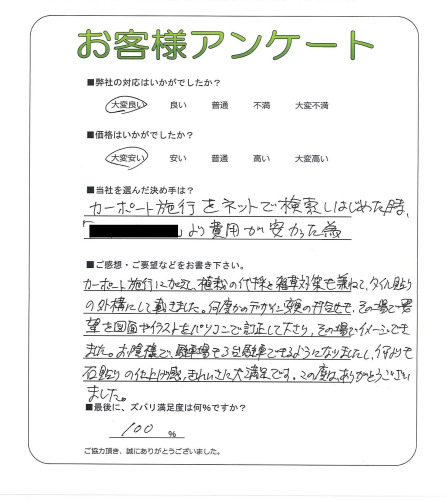 お客様アンケート
■弊社の対応はいかがでしたか？
大変良い 良い 普通 不満 大変不満
■価格はいかがでしたか？
大変安い 安い 普通 高い 大変高い
■当社を選んだ決め手は？
カーポート施行をネットで検索しはじめた時、
「 」より費用が安かった為
■ご感想・ご要望などをお書き下さい。
カーポート施行に加えて、植栽の代採と雑草対策も兼ねて、タイル貼り
の外構にして戴きました。何度かのデザイン変更の打合せで、その場で要
望を図面やイラストをパソコンで訂正して下さり、その場でイメージでき
ました。お陰様で、駐車場も3台駐車できるようになりましたし、何よりも
石貼りの仕上げ感、きれいさに大満足です。この度は、ありがとうござい
ました。
■最後に、ズバリ満足度は何%ですか？
100 %
ご協力頂き、誠にありがとうございました。